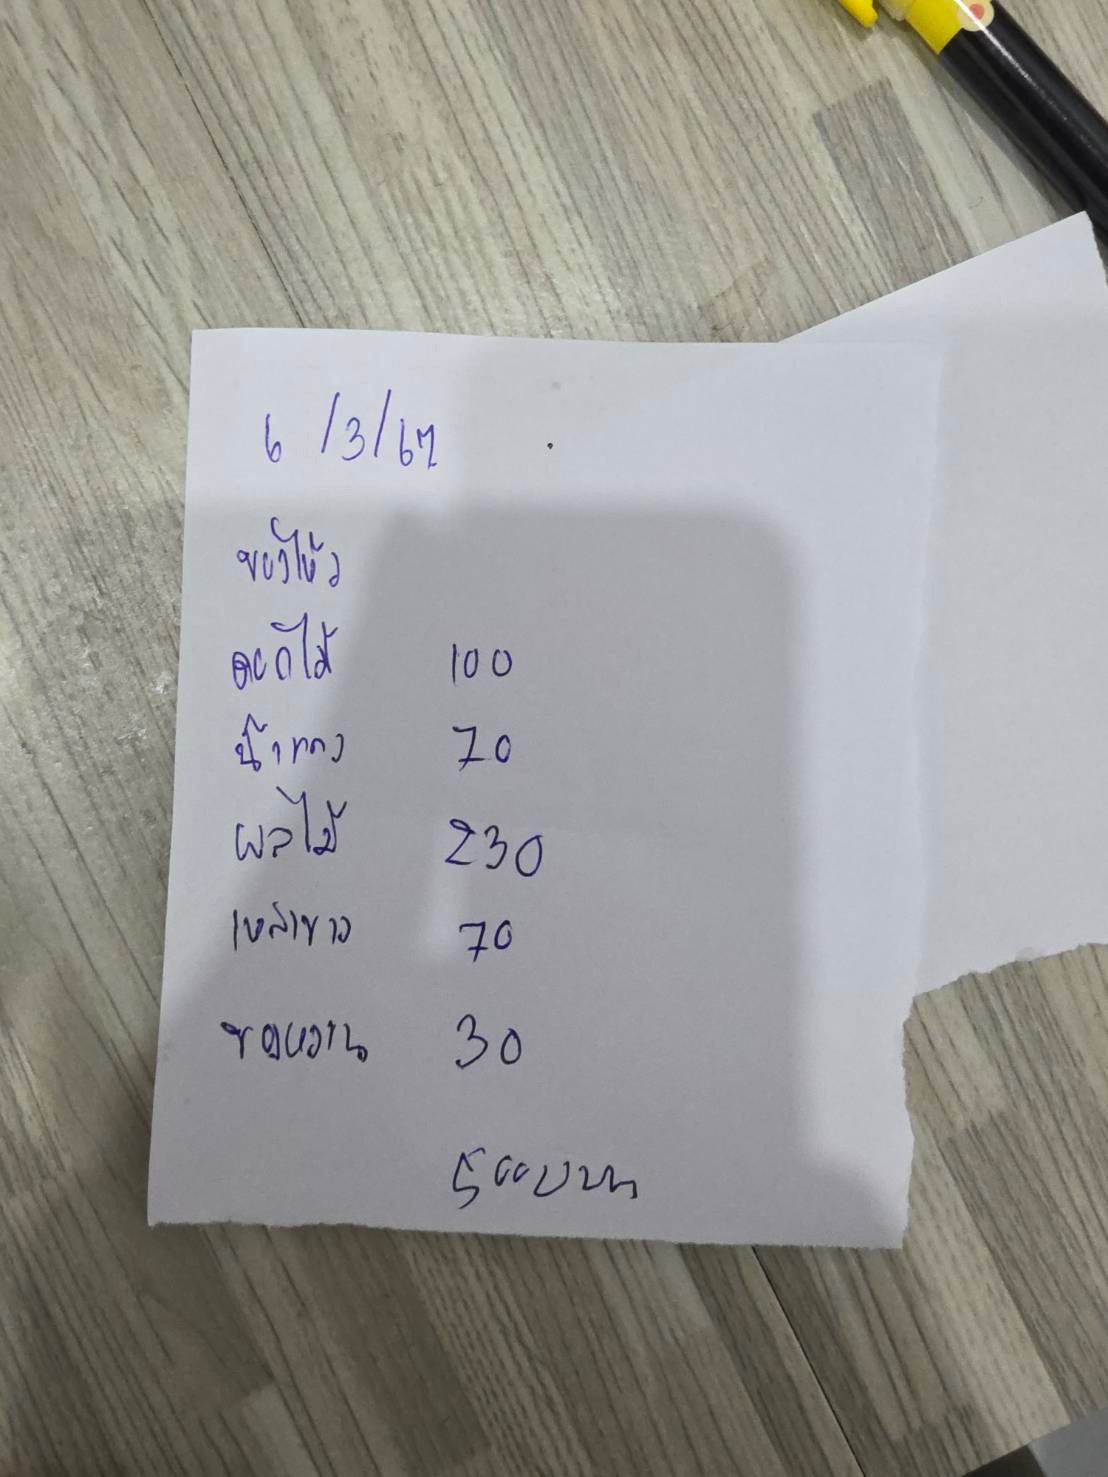 6 /3/67
ของไหว้
ดอกไม้ 100
น้ำแดง 70
ผลไม้ 230
เหล้าขาว 70
ของหวาน 30
500บาท